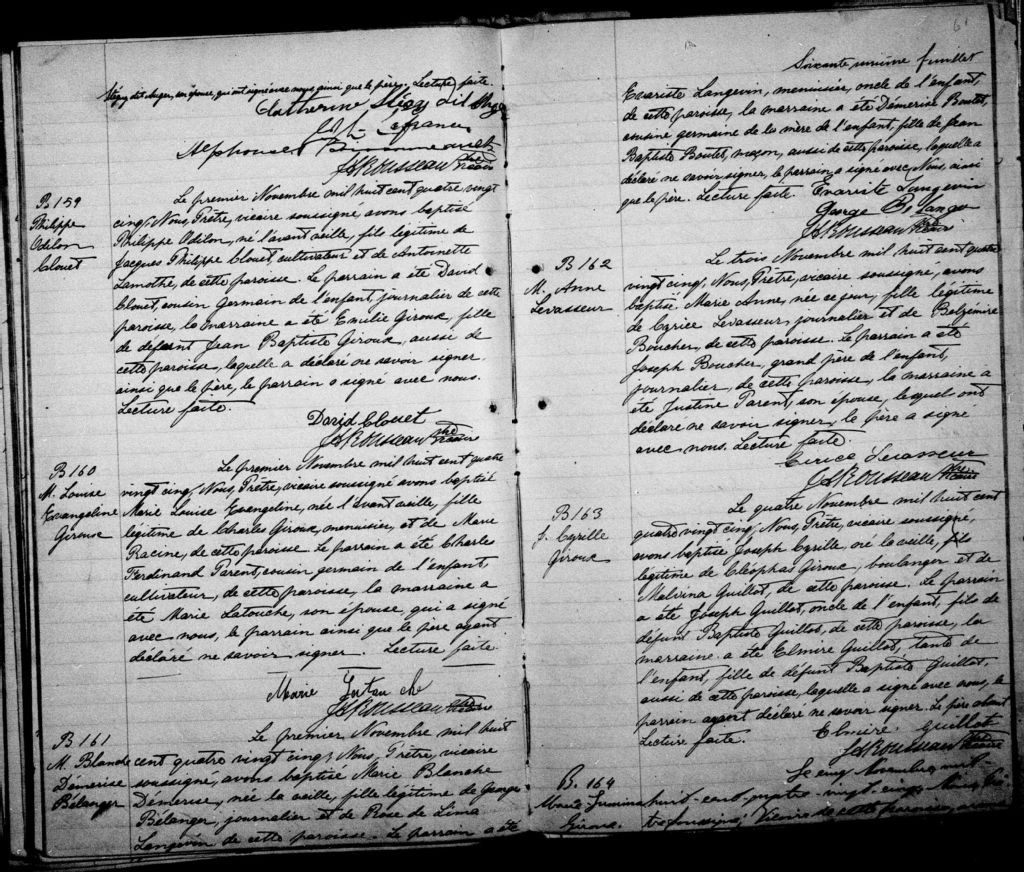 Légaz dit Auger, son épouse, qui ont signé avec nous ainsi que le père. Lecture faite.
Catherine Légaz dit
Alphonse
JARousseau Ptre Vicaire
B 159
Philippe
Odilon
Clouet
Le premier Novembre mil huit cent quatre vingt
cinq, Nous, Prêtre, vicaire soussigné avons baptisé
Philippe Odilon, né l'avant veille, fils légitime de
Jacques Philippe Clouet, cultivateur et de Antoinette
Lamothe, de cette paroisse. Le parrain a été David
Clouet cousin Germain de l'enfant, journalier de cette
paroisse, la marraine a été Emilie Giroux, fille
de defunt Jean Baptiste Giroux, aussi de
cette paroisse, laquelle a déclaré ne savoir signer
ainsi que le père, le parrain a signé avec nous.
Lecture faite.
David Clouet
JARousseau Ptre Vicaire
B 160
M. Louise
Evangeline
Giroux
Le premier Novembre mil huit cent quatre
vingt cinq, Nous, Prêtre, vicaire soussigné avons baptisé
Marie Louise Evangeline, née l'avant veille, fille
légitime de Charles Giroux, menuisier, et de Marie
Racine, de cette paroisse. Le parrain a été Charles
Ferdinand Parent, cousin germain de l'enfant
cultivateur, de cette paroisse, la marraine a
été Marie Latouche, son épouse, qui a signé
avec nous, le parrain ainsi que le père ayant
déclaré ne savoir signer. Lecture faite
Marie
JARousseau Ptre Vicaire
B 161
M. Blanche
Démerise
Bélanger
Le premier Novembre mil huit
cent quatre vingt cinq, Nous, Prêtre, vicaire
soussigné, avons baptisé Marie Blanche
Démerise, née la veille, fille légitime de George
Bélanger, journalier et de Rose de Lima
Langevin de cette paroisse. Le parrain a été
61
Soixante unième feuillet
Evariste Langevin, menuisier, oncle de l'enfant,
de cette paroisse, la marraine a été Démerise Boutet,
cousine germaine de la mère de l'enfant, fille de Jean
Baptiste Boutet, maçon, aussi de cette paroisse, laquelle a
déclaré ne savoir signer, le parrain a signé avec Nous, ainsi
que le père. Lecture faite. Evariste Langevin
George Bélanger
JARousseau Ptre Vicaire
B 162
M. Anne
Levasseur
Le trois Novembre mil huit cent quatre
vingt cinq, Nous, Prêtre, vicaire soussigné, avons
baptisé Marie Anne, née ce jour, fille légitime
de Cyrice Levasseur, journalier et de Belzemire
Boucher, de cette paroisse. Le parrain a été
Joseph Boucher, grand père de l'enfant,
journalier, de cette paroisse, la marraine a
été Justine Parent, son épouse, lesquel ont
déclaré ne savoir signer, le père a signé
avec nous. Lecture faite.
Cirice Levasseur
JARousseau Ptre Vicaire
B 163
J. Cyrille
Giroux
Le quatre Novembre mil huit cent
quatre vingt cinq, Nous, Prêtre, vicaire soussigné,
avons baptisé Joseph Cyrille né la veille, fils
légitime de Cléophas Giroux, boulanger et de
Malvina Guillot, de cette paroisse. Le parrain
a été Joseph Guillot, oncle de l'enfant, fils de
défunt Baptiste Guillot, de cette paroisse, la
marraine a été Elmire Guillot, tante de
l'enfant, fille de défunt Baptiste Guillot,
aussi de cette paroisse, laquelle a signé avec nous, le
parrain ayant déclaré ne savoir signer. Le père absent
Lecture faite. Elmire Guillot
JARousseau Ptre Vicaire
B. 164
Marie
Giroux.
Le cinq Novembre mil-
huit-cent-quatre-vingt-cinq, Nous, Prê-
tre soussigné, Vicaire de cette paroisse, avons